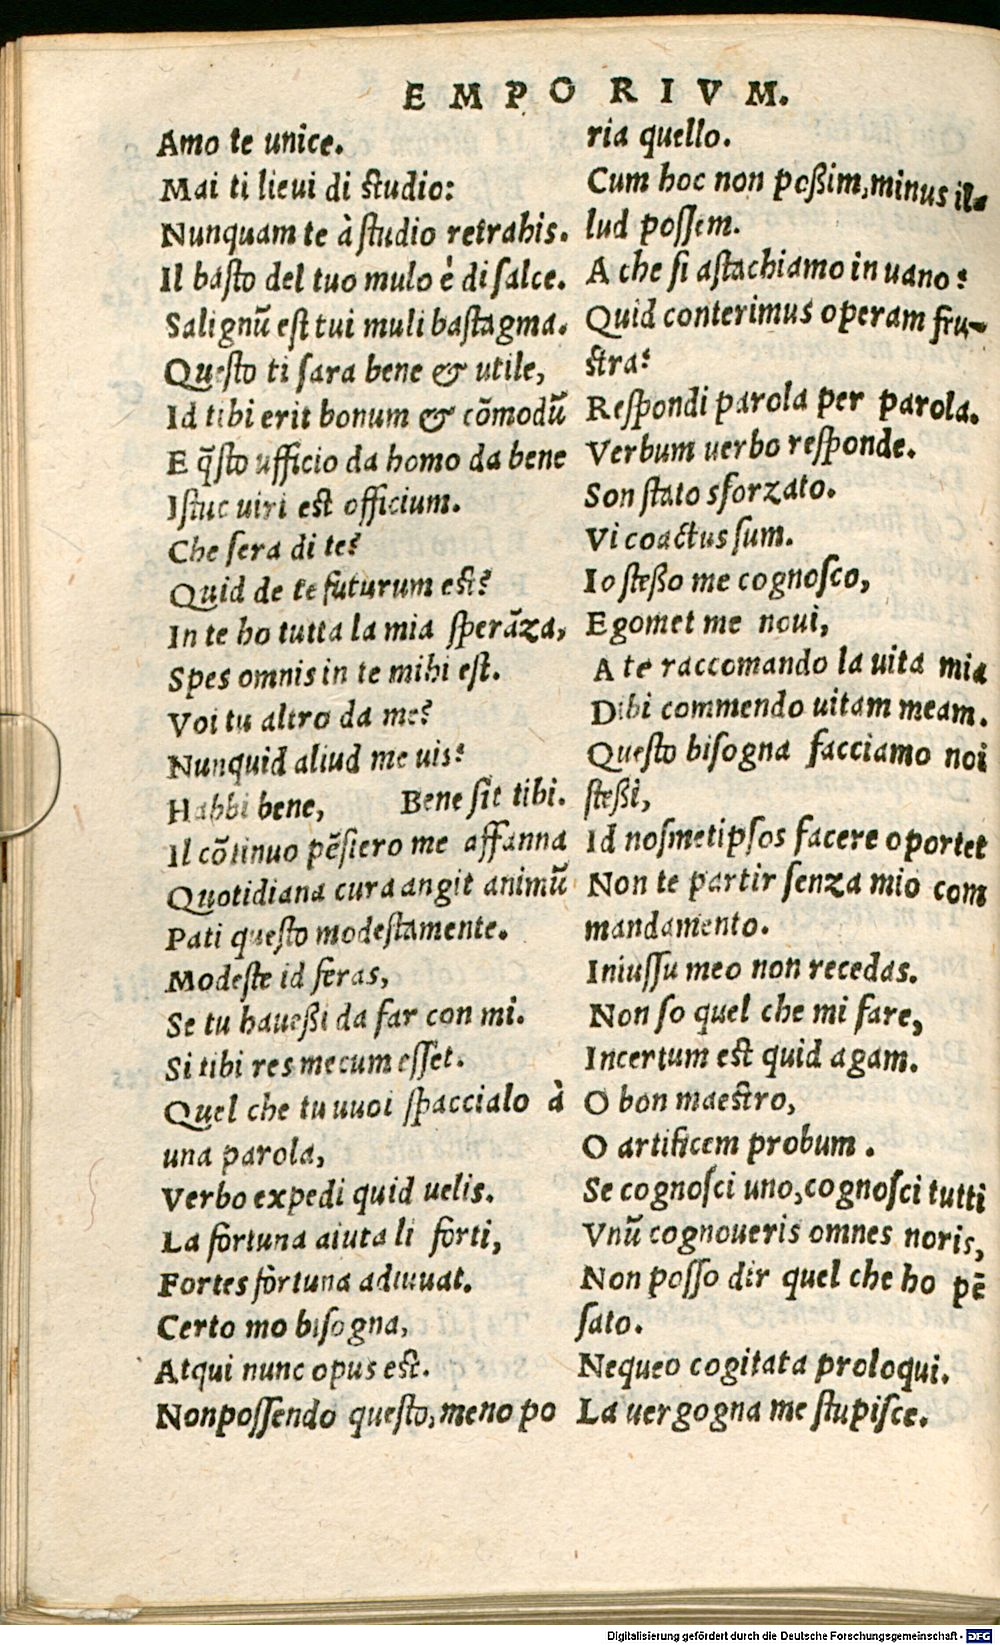 EMPORIVM.
Amo te unice.
Mai ti lieui di studio:
Nunquam te à studio retrahis.
Il basto del tuo mulo è di salce.
Salignũ est tui muli bastagma.
Questo ti sara bene & utile,
Id tibi erit bonum & cõmodũ
E q̃sto ufficio da homo da bene
Istuc uiri est officium.
Che sera di te?
Quid de te futurum est?
In te ho tutta la mia sperãza,
Spes omnis in te mihi est.
Voi tu altro da me?
Nunquid aliud me uis?
Habbi bene, Bene sit tibi.
Il cõtinuo pẽsiero me affanna
Quotidiana cura angit animũ
Pati questo modestamente.
Modeste id feras,
Se tu haueßi da far con mi.
Si tibi res mecum esset.
Quel che tu uuoi spaccialo à
una parola,
Verbo expedi quid uelis.
La fortuna aiuta li forti,
Fortes fortuna adiuuat.
Certo mo bisogna,
Atqui nunc opus est.
Non possendo questo, meno po
ria quello.
Cum hoc non poßim, minus il-
lud possem.
A che si astachiamo in uano?
Quid conterimus operam fru-
stra?
Respondi parola per parola.
Verbum uerbo responde.
Son stato sforzato.
Vi coactus sum.
Io steßo me cognosco,
Egomet me noui,
A te raccomando la uita mia
Dibi commendo uitam meam.
Questo bisogna facciamo noi
steßi,
Id nosmetipsos facere oportet
Non te partir senza mio com
mandamento.
Iniussu meo non recedas.
Non so quel che mi fare,
Incertum est quid agam.
O bon maestro,
O artificem probum.
Se cognosci uno, cognosci tutti
Vnũ cognoueris omnes noris,
Non posso dir quel che ho pẽ
sato.
Nequeo cogitata proloqui.
La uergogna me stupisce.
Digitalisierung gefördert durch die Deutsche Forschungsgemeinschaft - DFG